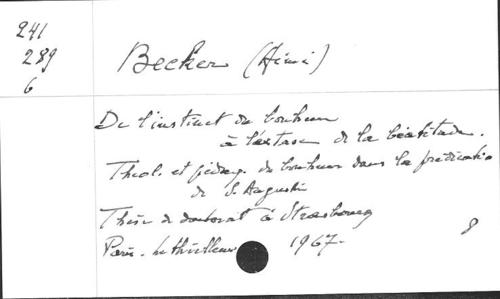 241
289
6
Becker (Aimé)
De l'instinct du bonheur
à l'extase de la béatitude.
Théol. et pédag. du bonheur dans la prédication
de S. Augustin
Thèse de doctorat à Strasbourg
Paris. Lethielleux 1967.
8